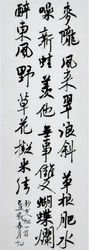 麥隴風來翠浪斜草根肥水
噪新蛙羨他無事雙蝴蝶爛
醉東風野草花擬米法